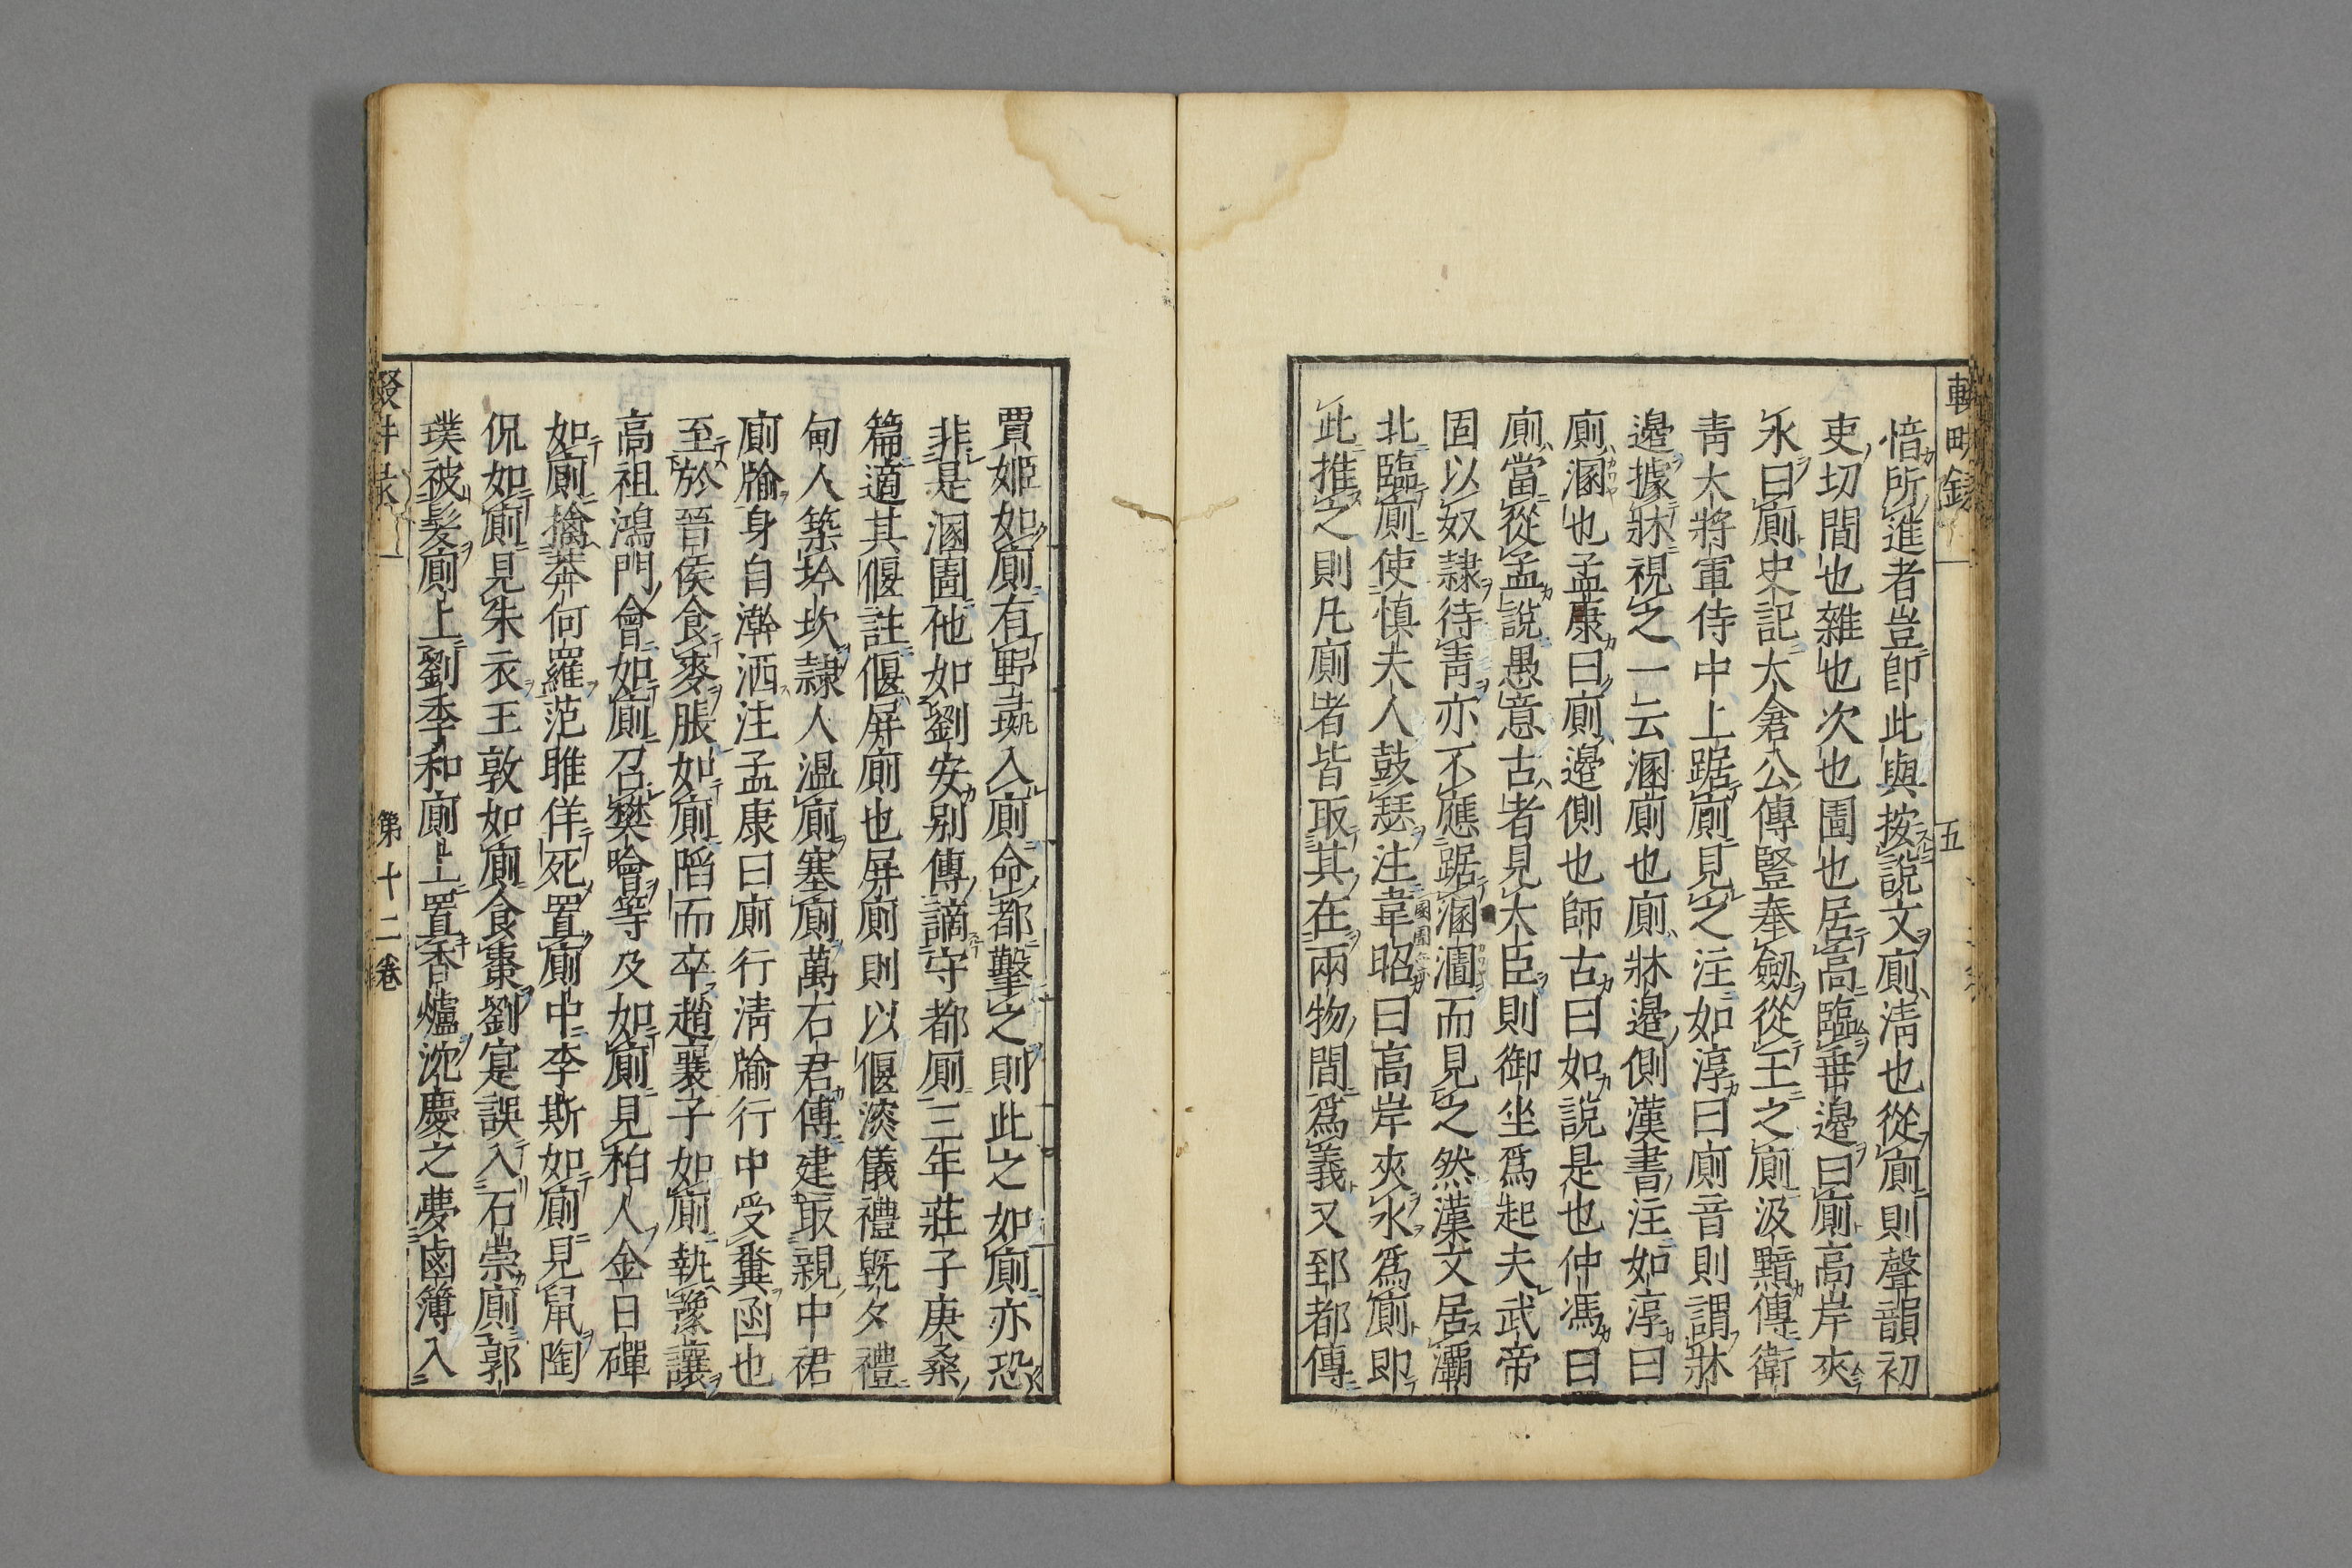 愔所進者豈卽此與按說文廁清也從廁則聲韻初
吏切間也雜也次也圊也居高臨垂邉曰廁高岸夾
水曰廁史記太倉公傳豎奉劔從王之廁汲黯傳衛
青大將軍侍中上踞廁見之注如淳曰廁音則謂牀
邉據牀視之一云溷廁也廁牀邉側漢書注如淳曰
廁溷也孟康曰廁邉側也師古曰如說是也仲馮曰
廁當從孟說愚意古者見大臣則御坐爲起夫武帝
固以奴隷待靑亦不應踞溷圊而見之然漢文居灞
北臨廁使慎夫人鼓瑟注韋昭曰高岸夾水爲廁即
此推之則凡廁者皆取其在兩物間爲義又郅都傳
賈姬如廁有野彘入廁命都擊之則此之如廁亦恐
非是溷圊他如劉安別傳謫守都廁三年莊子庚桑
篇適其偃註偃屏廁也屏廁則以偃溲儀禮旣夕禮
甸人築坅坎隷人溫廁塞廁萬石君傳建取親中裙
廁牏身自澣洒注孟康曰廁行淸牏行中受糞函也
至於晉侯食麥脹如廁陷而卒趙襄子如廁執豫讓
高祖鴻門會如廁召樊噲等及如廁見柏人金日磾
如廁擒莽何羅范雎佯死置廁中李斯如廁見鼠陶
侃如廁見朱衣王敦如廁食棗劉寔誤入石崇廁郭
璞被髮廁上劉季和廁上置香爐沈慶之夢鹵簿入
第十二卷
五